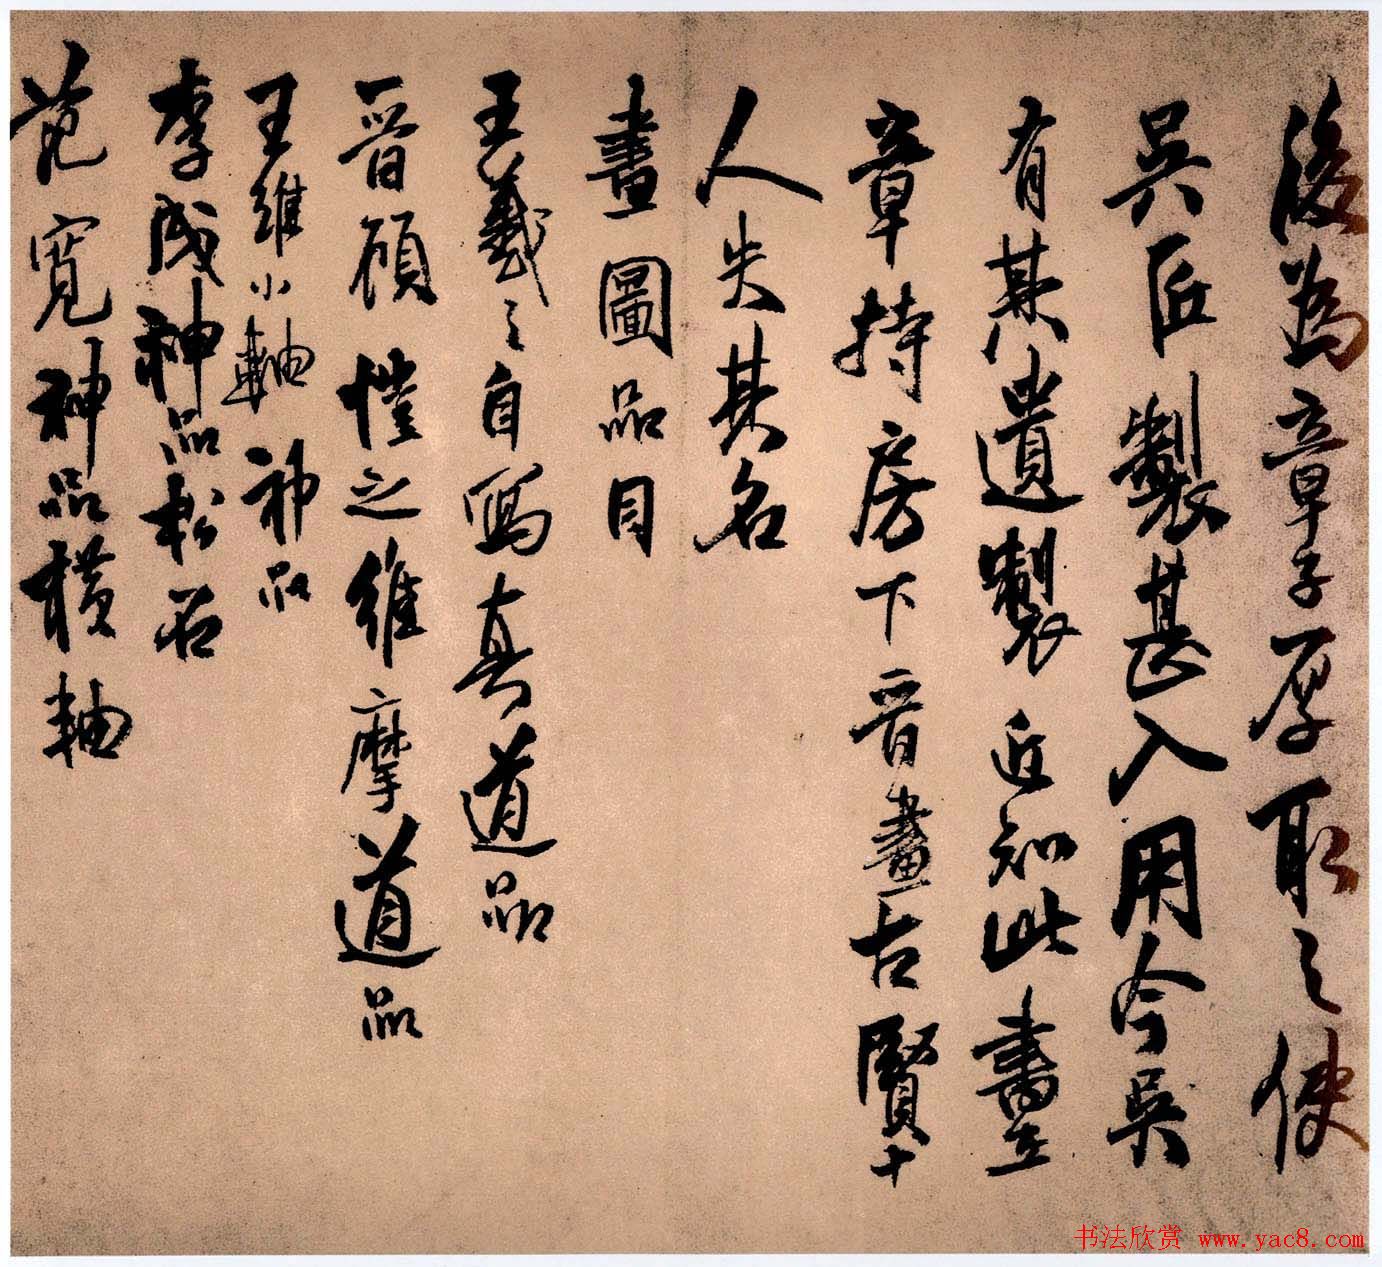 後為章子厚取之使
吳匠製甚入用今吳
有其遺製近知此畫在
章持房下晉畫古賢十
人失其名
畫圖品目
王羲之自寫真道品
晉顧愷之維摩道品
王維小軸神品
李成神品松石
范寬神品橫軸
书法欣赏 www.yac8.com